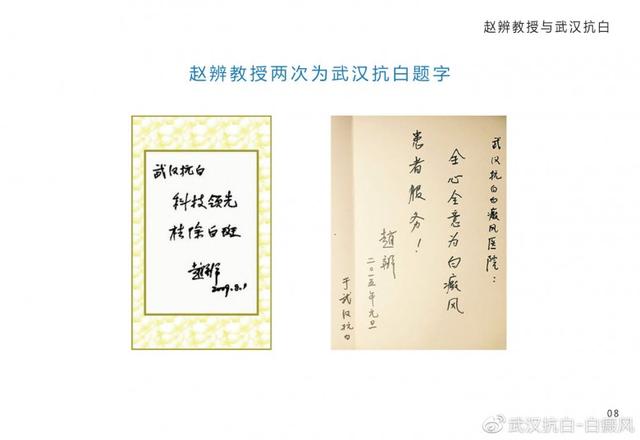 赵辨教授与武汉抗白
赵辨教授两次为武汉抗白题字
武汉抗白
科技领先
祛除白斑
趙辨
2009.8.1
武汉抗白白癜风医院:
全心全意为白癜风
患者服务!
趙辨
二〇一五年元旦
于武汉抗白
08
武汉抗白-白癜风